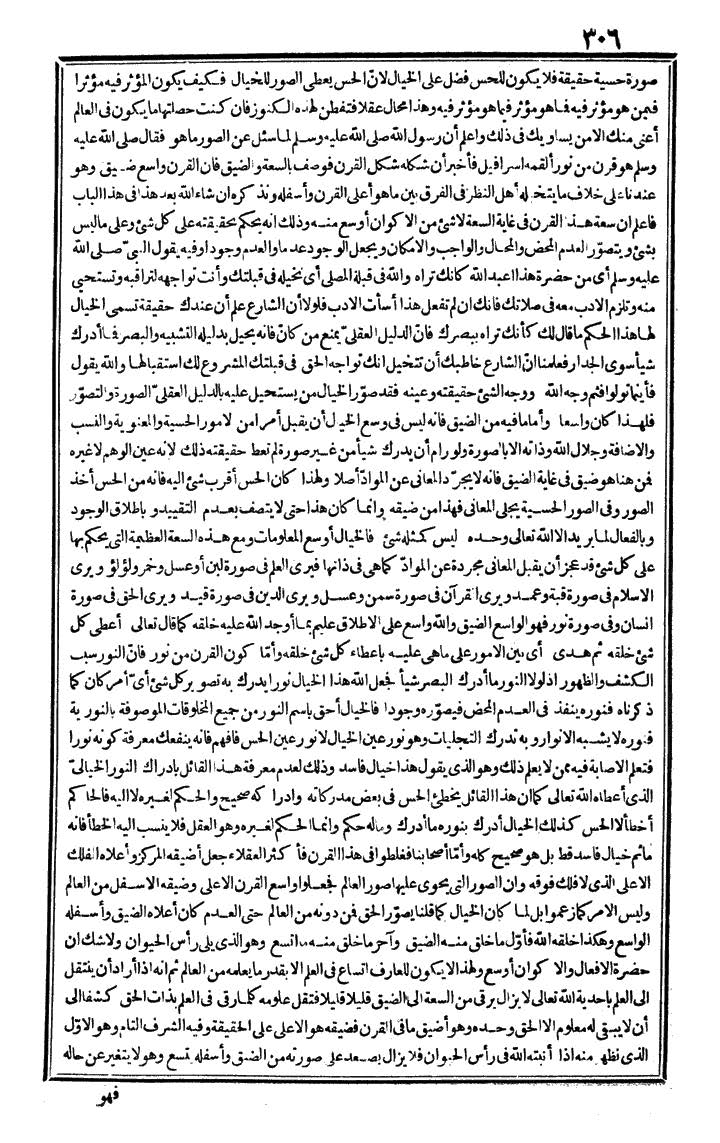 ٣٠٦
صورة حسية حقيقة فلا يكون للحس فضل على الخيال لانّ الحس يعطى الصور للخيال فكيف يكون المؤثر فيه مؤثرا
فيمن هو مؤثر فيه فما هو مؤثر فيما هو مؤثر فيه وهذا محال عقلا فتفطن لهذه الكنوز فان كنت حصلتها ما يكون فى العالم
أغنى منك الامن يساويك فى ذلك واعلم أن رسول الله صلى الله عليه وسلم لما سئل عن الصور ما هو فقال صلى الله عليه
وسلم هو قرن من نور ألقمه اسرافيل فأخبر أن شكله شكل القرن فوصف بالسعة والضيق فان القرن واسع ضيق وهو
عندنا على خلاف ما يتخيله أهل النظر فى الفرق بين ما هو أعلى القرن وأسفله ونذكره ان شاء الله بعد هذا فى هذا الباب
فاعلم ان سعة هذا القرن فى غاية السعة لا شئ من الاكوان أوسع منه وذلك انه يحكم بحقيقته على كل شئ وعلى ما ليس
بشئ ويتصوّر العدم المحض والمحال والواجب والامكان ويجعل الوجود عدما والعدم وجودا وفيه يقول النبىّ صلى الله
عليه وسلم أى من حضرة هذا اعبد الله كانك تراه والله فى قبلة المصلى أى تخيله فى قبلتك وأنت تواجهه لتراقبه وتستحيى
منه وتلزم الادب معه فى صلاتك فانك ان لم تفعل هذا أسأت الادب فلولا أن الشارع علم أن عندك حقيقة تسمى الخيال
لها هذا الحكم ما قال لك كأنك تراه ببصرك فانّ الدليل العقلىّ يمنع من كانّ فانه يحيل بدليله التشبيه والبصر فما أدرك
شيأ سوى الجدار فعلمنا انّ الشارع خاطبك أن تتخيل انك تواجه الحق فى قبلتك المشروع لك استقبالها والله يقول
فأينما تولوا فثم وجه الله ووجه الشئ حقيقته وعينه فقد صوّر الخيال من يستحيل عليه بالدليل العقلىّ الصورة والتصوّر
فلهذا كان واسعا وأما ما فيه من الضيق فانه ليس فى وسع الخيال أن يقبل أمرا من الامور الحسية والمعنوية والنسب
والاضافة وجلال الله وذاته الا بالصورة ولو رام أن يدرك شيأ من غير صورة لم تعط حقيقته ذلك لانه عين الوهم لا غيره
فمن هنا هو ضيق فى غاية الضيق فانه لا يجرّد المعانى عن الموادّ أصلا ولهذا كان الحس أقرب شئ اليه فانه من الحس أخذ
الصور وفى الصور الحسية يجلى المعانى فهذا من ضيقه وانما كان هذا حتى لا يتصف بعدم التقييد و باطلاق الوجود
وبالفعال لما يريد الا الله تعالى وحده ليس كمثله شئ فالخيال أوسع المعلومات ومع هذه السعة العظيمة التى يحكم بها
على كل شئ قد عجز أن يقبل المعانى مجردة عن الموادّ كما هى فى ذاتها فيرى العلم فى صورة لبن أو عسل وخمر ولؤلؤ ويرى
الاسلام فى صورة قبة وعمد ويرى القرآن فى صورة سمن وعسل ويرى الدين فى صورة قيد ويرى الحق فى صورة
انسان وفى صورة نور فهو الواسع الضيق والله واسع على الاطلاق عليم بما أوجد الله عليه خلقه كما قال تعالى أعطى كل
شئ خلقه ثم هدى أى بين الامور على ما هى عليه باعطاء كل شئ خلقه وأمّا كون القرن من نور فانّ النور سبب
الكشف والظهور اذ لولا النور ما أدرك البصر شيأ فجعل الله هذا الخيال نورا يدرك به تصوير كل شئ أىّ أمر كان كما
ذكرناه فنوره ينفذ فى العدم المحض فيصوّره وجودا فالخيال أحق باسم النور من جميع المخلوقات الموصوفة بالنورية
فنوره لا يشبه الانوار وبه تدرك التجليات وهو نور عين الخيال لا نور عين الحس فافهم فانه ينفعك معرفة كونه نورا
فتعلم الاصابة فيه ممن لا يعلم ذلك وهو الذى يقول هذا خيال فاسد وذلك لعدم معرفة هذا القائل بادراك النور الخيالىّ
الذى أعطاه الله تعالى كما ان هذا القائل يخطئ الحس فى بعض مدركاته وادراكه صحيح والحكم لغيره لا اليه فالحاكم
أخطأ لا الحس كذلك الخيال أدرك بنوره ما أدرك وماله حكم وانما الحكم لغيره وهو العقل فلا ينسب اليه الخطأ فانه
ما ثم خيال فاسد قط بل هو صحيح كله وأمّا أصحابنا فغلطوا فى هذا القرن فأكثر العقلاء جعل أضيقه المركز وأعلاه الفلك
الاعلى الذى لا فلك فوقه وان الصور التى يحوى عليها صور العالم فجعلوا واسع القرن الاعلى وضيقه الاسفل من العالم
وليس الامر كما زعموا بل لما كان الخيال كما قلنا يصوّر الحق فمن دونه من العالم حتى العدم كان أعلاه الضيق وأسفله
الواسع وهكذا خلقه الله فأوّل ما خلق منه الضيق وآخر ما خلق منه ما اتسع وهو الذى يلى رأس الحيوان ولا شك ان
حضرة الافعال والاكوان أوسع ولهذا لا يكون للعارف اتساع فى العلم الا بقدر ما يعلمه من العالم ثم انه اذا أراد أن ينتقل
الى العلم باحدية الله تعالى لا يزال يرقى من السعة الى الضيق قليلا قليلا فتقل علومه كلما رقى فى العلم بذات الحق كشفا الى
أن لا يبقى له معلوم الا الحق وحده وهو أضيق ما فى القرن فضيقه هو الاعلى على الحقيقة وفيه الشرف التام وهو الاوّل
الذى نظهر منه اذا أنبته الله فى رأس الحيوان فلا يزال يصعد على صورته من الضيق وأسفله يتسع وهو لا يتغير عن حاله
فهو